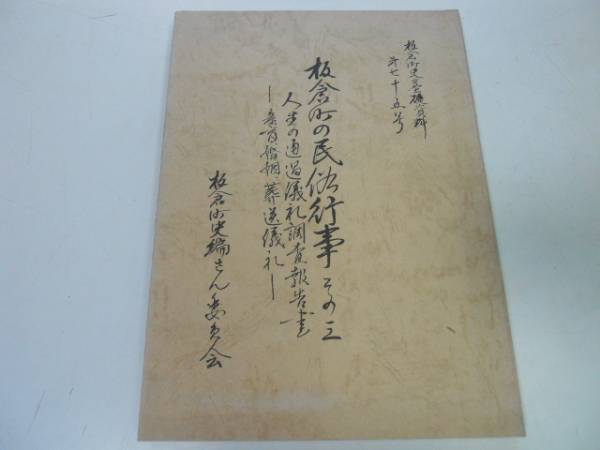 板倉町史基礎資料
第七十五号
板倉町の民俗行事 その三
人生の通過儀礼調査報告書
―産育、婚姻、葬送儀礼―
板倉町史編さん委員会